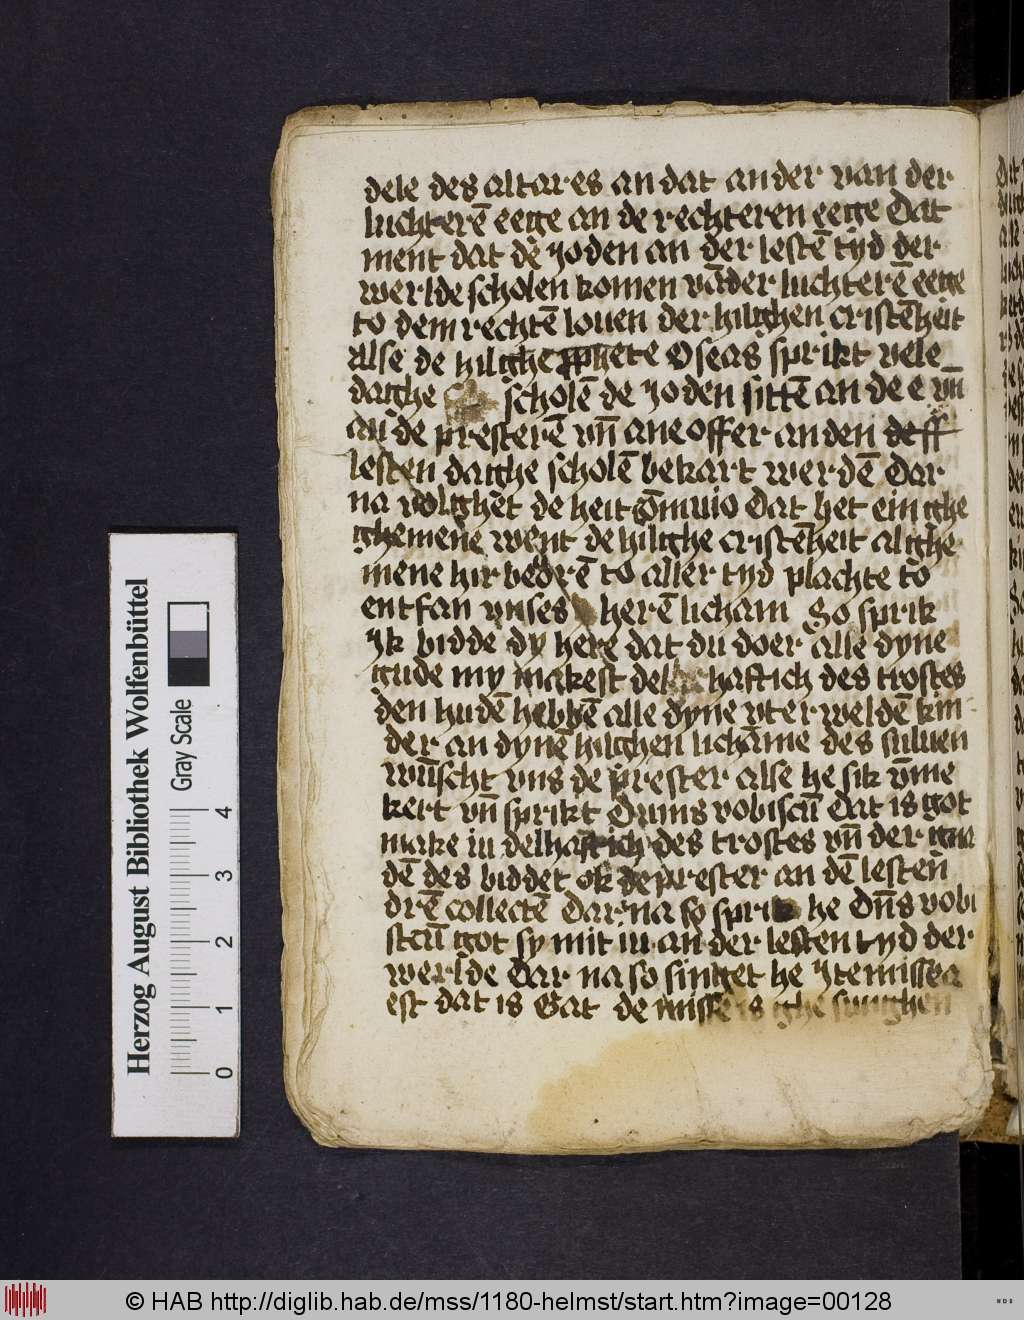 dele des altares an dat ander van der
luchterē egge an de rechteren egge Dat
ment dat de yoden an der lestē tyd der
werlde scholen komen vā der luchterē egge
to dem rechtē louen der hilighen cristēheit
alse de hilighe pphete Oseas sprikt vele
daghe scholē de yoden sittē an de e vn̄
an de presterē vn̄ ane offer an den
lesten daghe scholē bekart werdē Dar
na volghet de heit Dat het ein ghe
ghemene went de hilighe cristēheit alghe
mene hir beuorē to aller tyd plachte to
entfan vnses herē licham So sprik
yk bidde dy here dat du doer alle dyne
gude my makest del haftich des trostes
den hudē hebbē alle dyne vter weldē kin
der an dynē hilghen lichāme des suluen
wūscht vns de prester alse he sik v̄me
kert vn̄ sprikt Dn̄ns vobiscū Dat is got
make iu delhaftich des trostes vn̄ der gna
dē des biddet ok de prester an dē lesten
drē collectē Dar na so sprik he Dn̄s vobi
scū got sy mit iu an der lesten tyd der
werlde Dar na so singet he yte missea
est dat is Gat de misse is ghe sunghen
Herzog August Bibliothek Wolfenbüttel
Gray Scale
0 1 2 3 4
© HAB http://diglib.hab.de/mss/1180-helmst/start.htm?image=00128